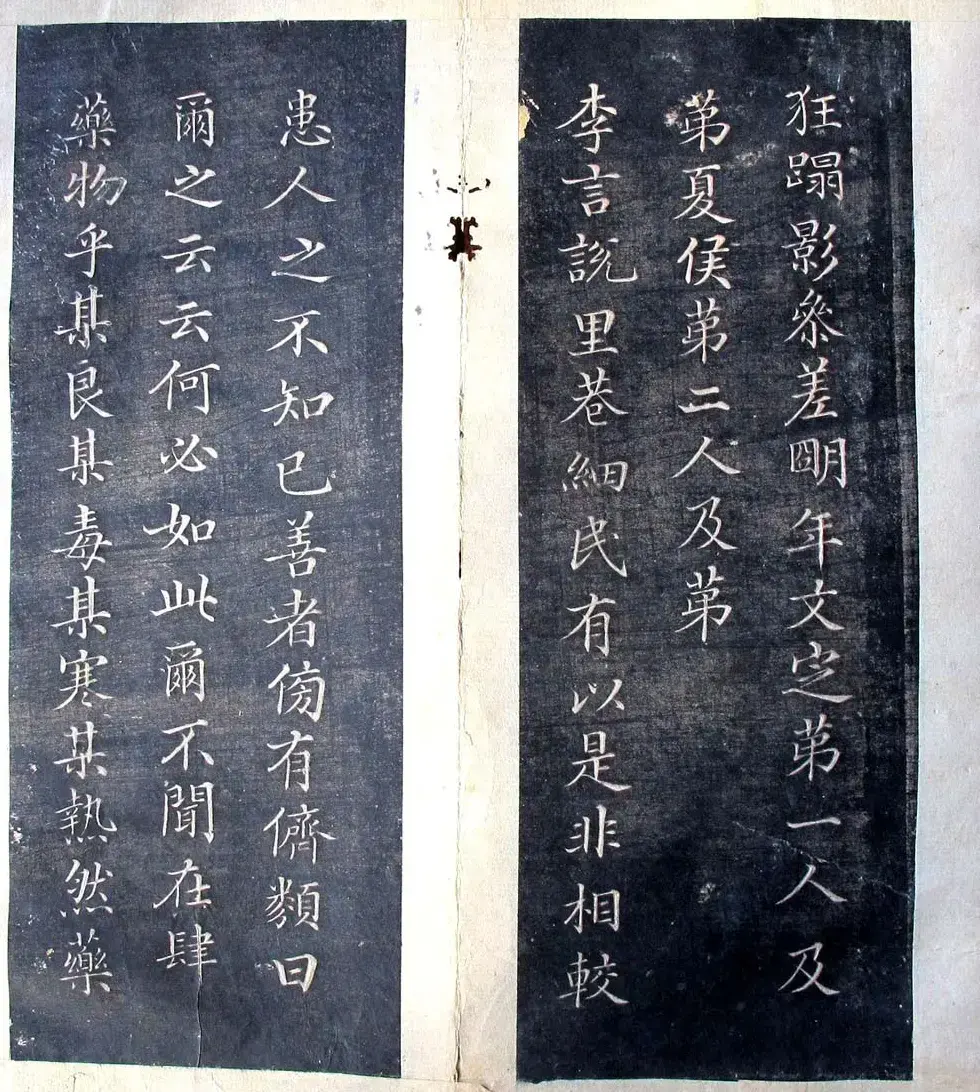 狂蹋影叅差朙年文定苐一人及
苐夏侯苐二人及苐
李言說里巷細民有以是非相較
患人之不知已善者傍有儕類曰
爾之云云何必如此爾不聞在肆
藥物乎某良某毒某寒某熱然藥